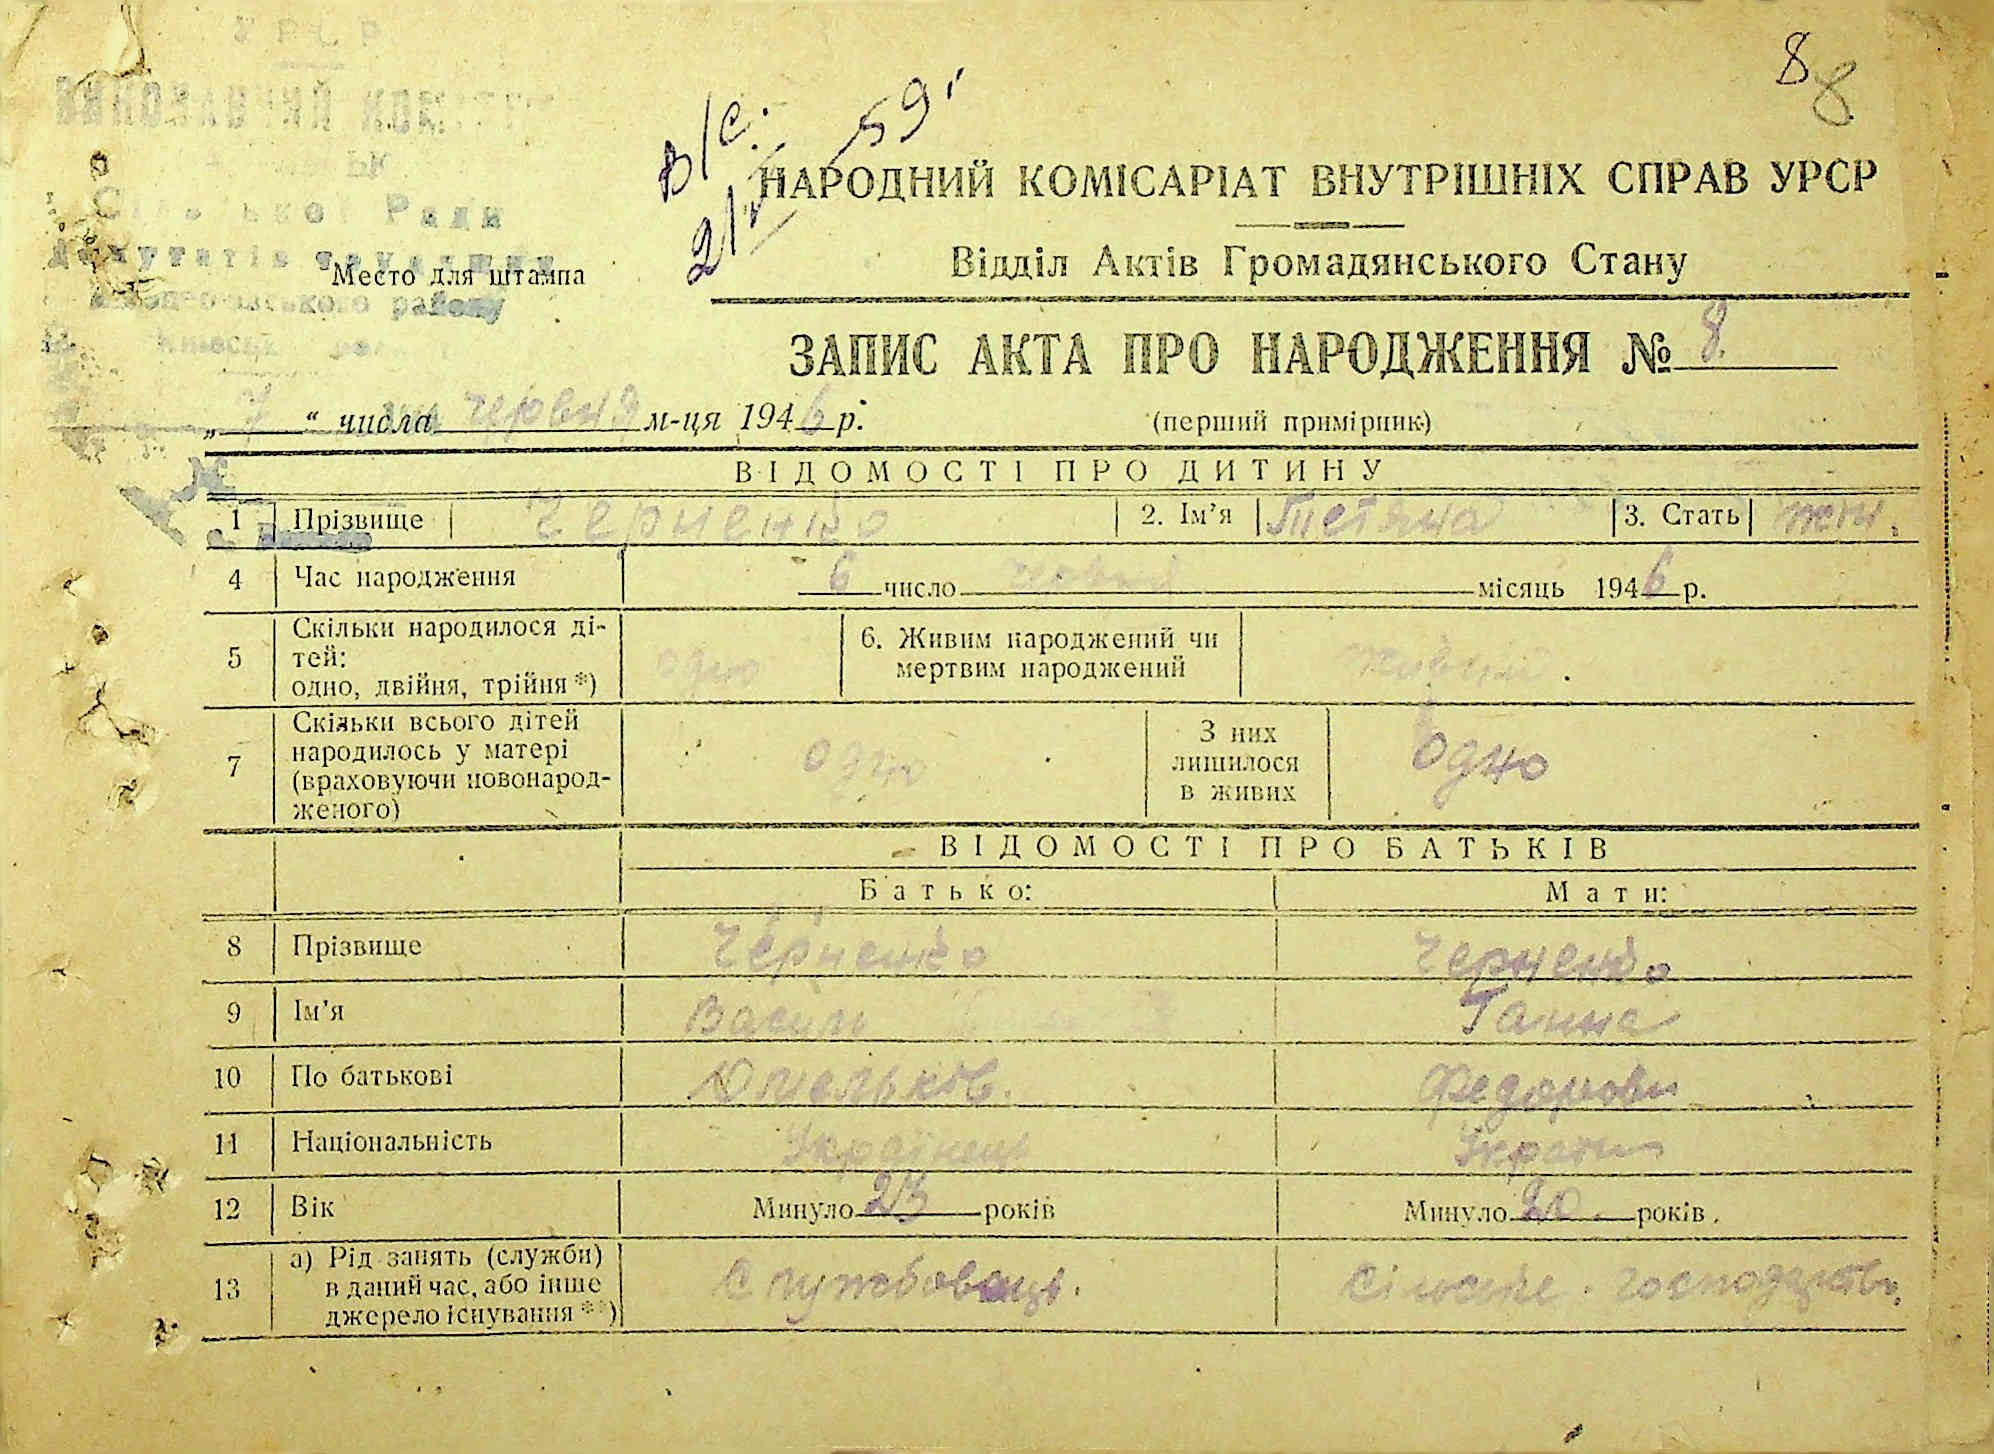 УРСР
Виконавчий комітет
Сільської Ради
депутатів трудящих
району
8 8
В/С.
59 г
НАРОДНИЙ КОМІСАРІАТ ВНУТРІШНІХ СПРАВ УРСР
Відділ Актів Громадянського Стану
Место для штампа
ЗАПИС АКТА ПРО НАРОДЖЕННЯ № 8
„ 7 “ числа червня м-ця 1946 р.
(перший примірник)
ВІДОМОСТІ ПРО ДИТИНУ
1 Прізвище Черненко 2. Ім’я Тетяна 3. Стать жін.
4 Час народження 6 число червня місяць 1946 р.
5 Скільки народилося ді-
тей:
одно, двійня, трійня *) одно
6. Живим народжений чи
мертвим народжений живим.
7 Скільки всього дітей
народилось у матері
(враховуючи новонарод-
женого) одно
З них
лишилося
в живих одно
ВІДОМОСТІ ПРО БАТЬКІВ
Батько: Мати:
8 Прізвище Черненко Черненко
9 Ім’я Василь Ганна
10 По батькові Омельков. Федоровн
11 Національність Українець Україн
12 Вік Минуло 23 років Минуло 20 років.
13 а) Рід занять (служби)
в даний час, або інше
джерело існування **) Службовець. Сільське господарство